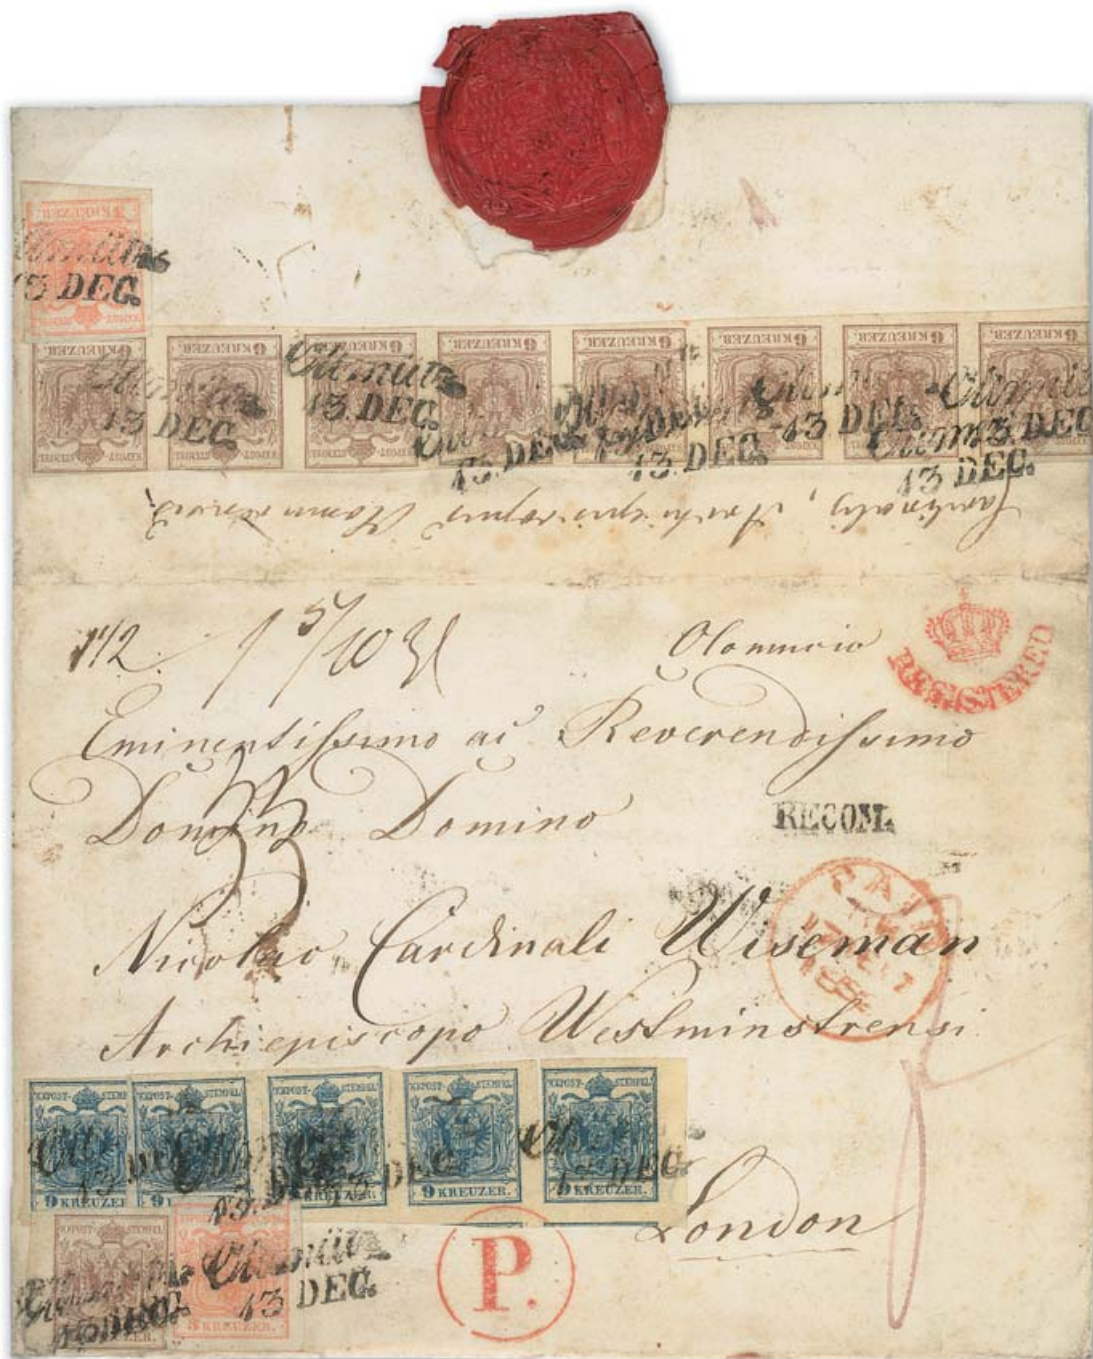 3 KREUZER.
Olmütz
13 DEC.
6 KREUZER. 6 KREUZER. 6 KREUZER. 6 KREUZER. 6 KREUZER. 6 KREUZER. 6 KREUZER. 6 KREUZER.
Olmütz
13 DEC.
Olmütz
13. DEC.
13 DEC.
13 DEC.
13 DEC.
Cardinalis, Archiepiscopus
112.
Olomucio
REGISTERED
Eminentissimo ac Reverendissimo
Domino Domino
RECOM.
Nicolao Cardinali Wiseman
PAID
Archiepiscopo Westminstrensi
KKPOST-STEMPEL KKPOST-STEMPEL KKPOST-STEMPEL KKPOST-STEMPEL KKPOST-STEMPEL
9 KREUZER. 9 KREUZER. 9 KREUZER. 9 KREUZER.
13 DEC.
London
KKPOST-STEMPEL
Olmütz
13 DEC.
3 KREUZER.
P.